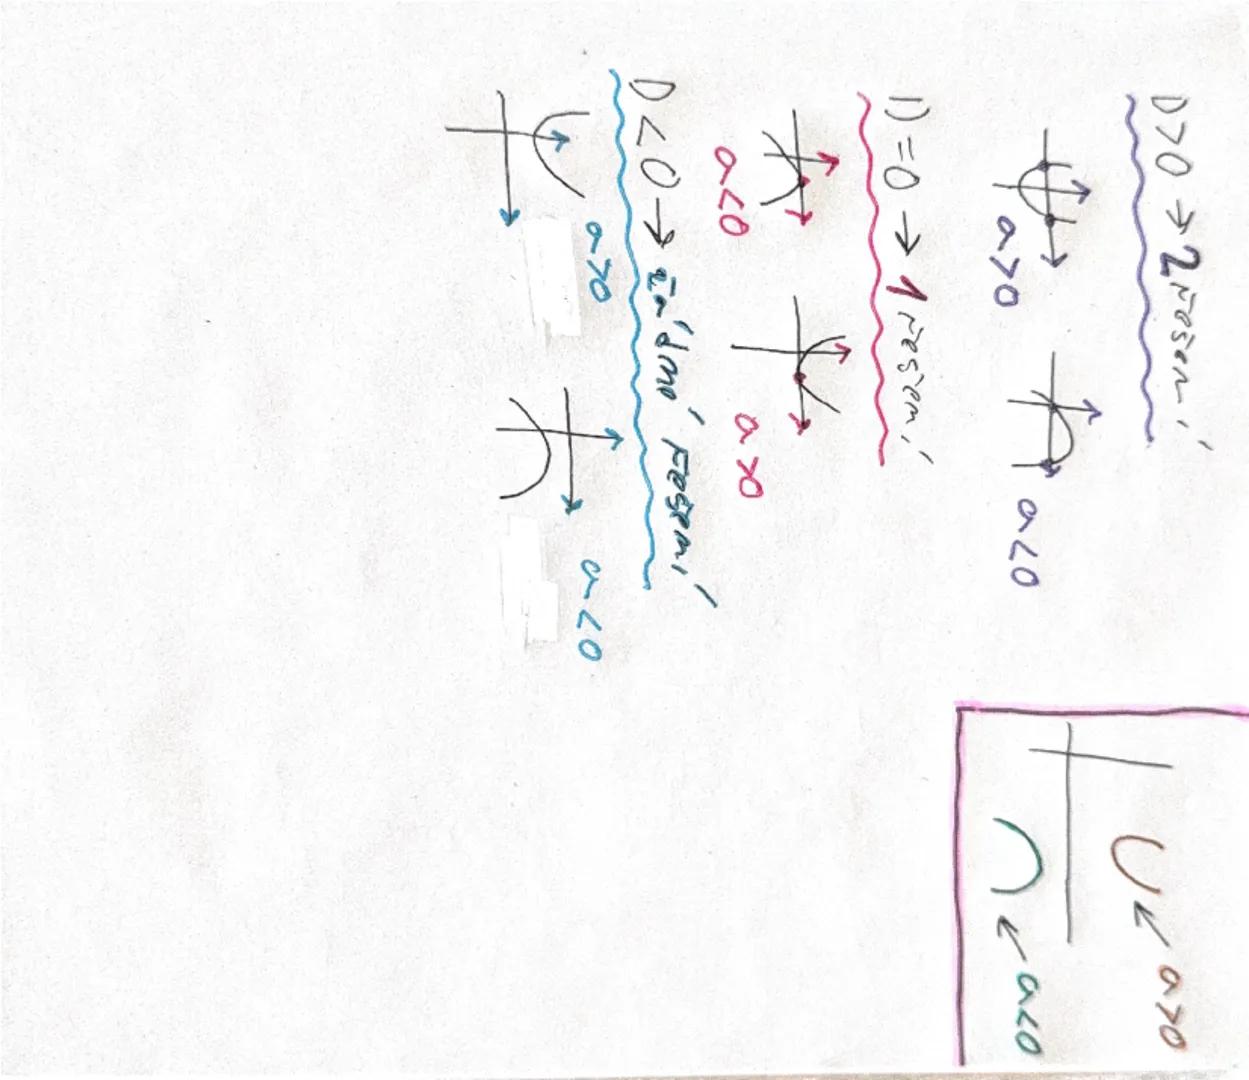 D>0 → 2 řešení
a>0
a<0
D=0 → 1 řešení
a<0
a>0
D<0 → žádné řešení
a>0
a<0
a>0
a<0